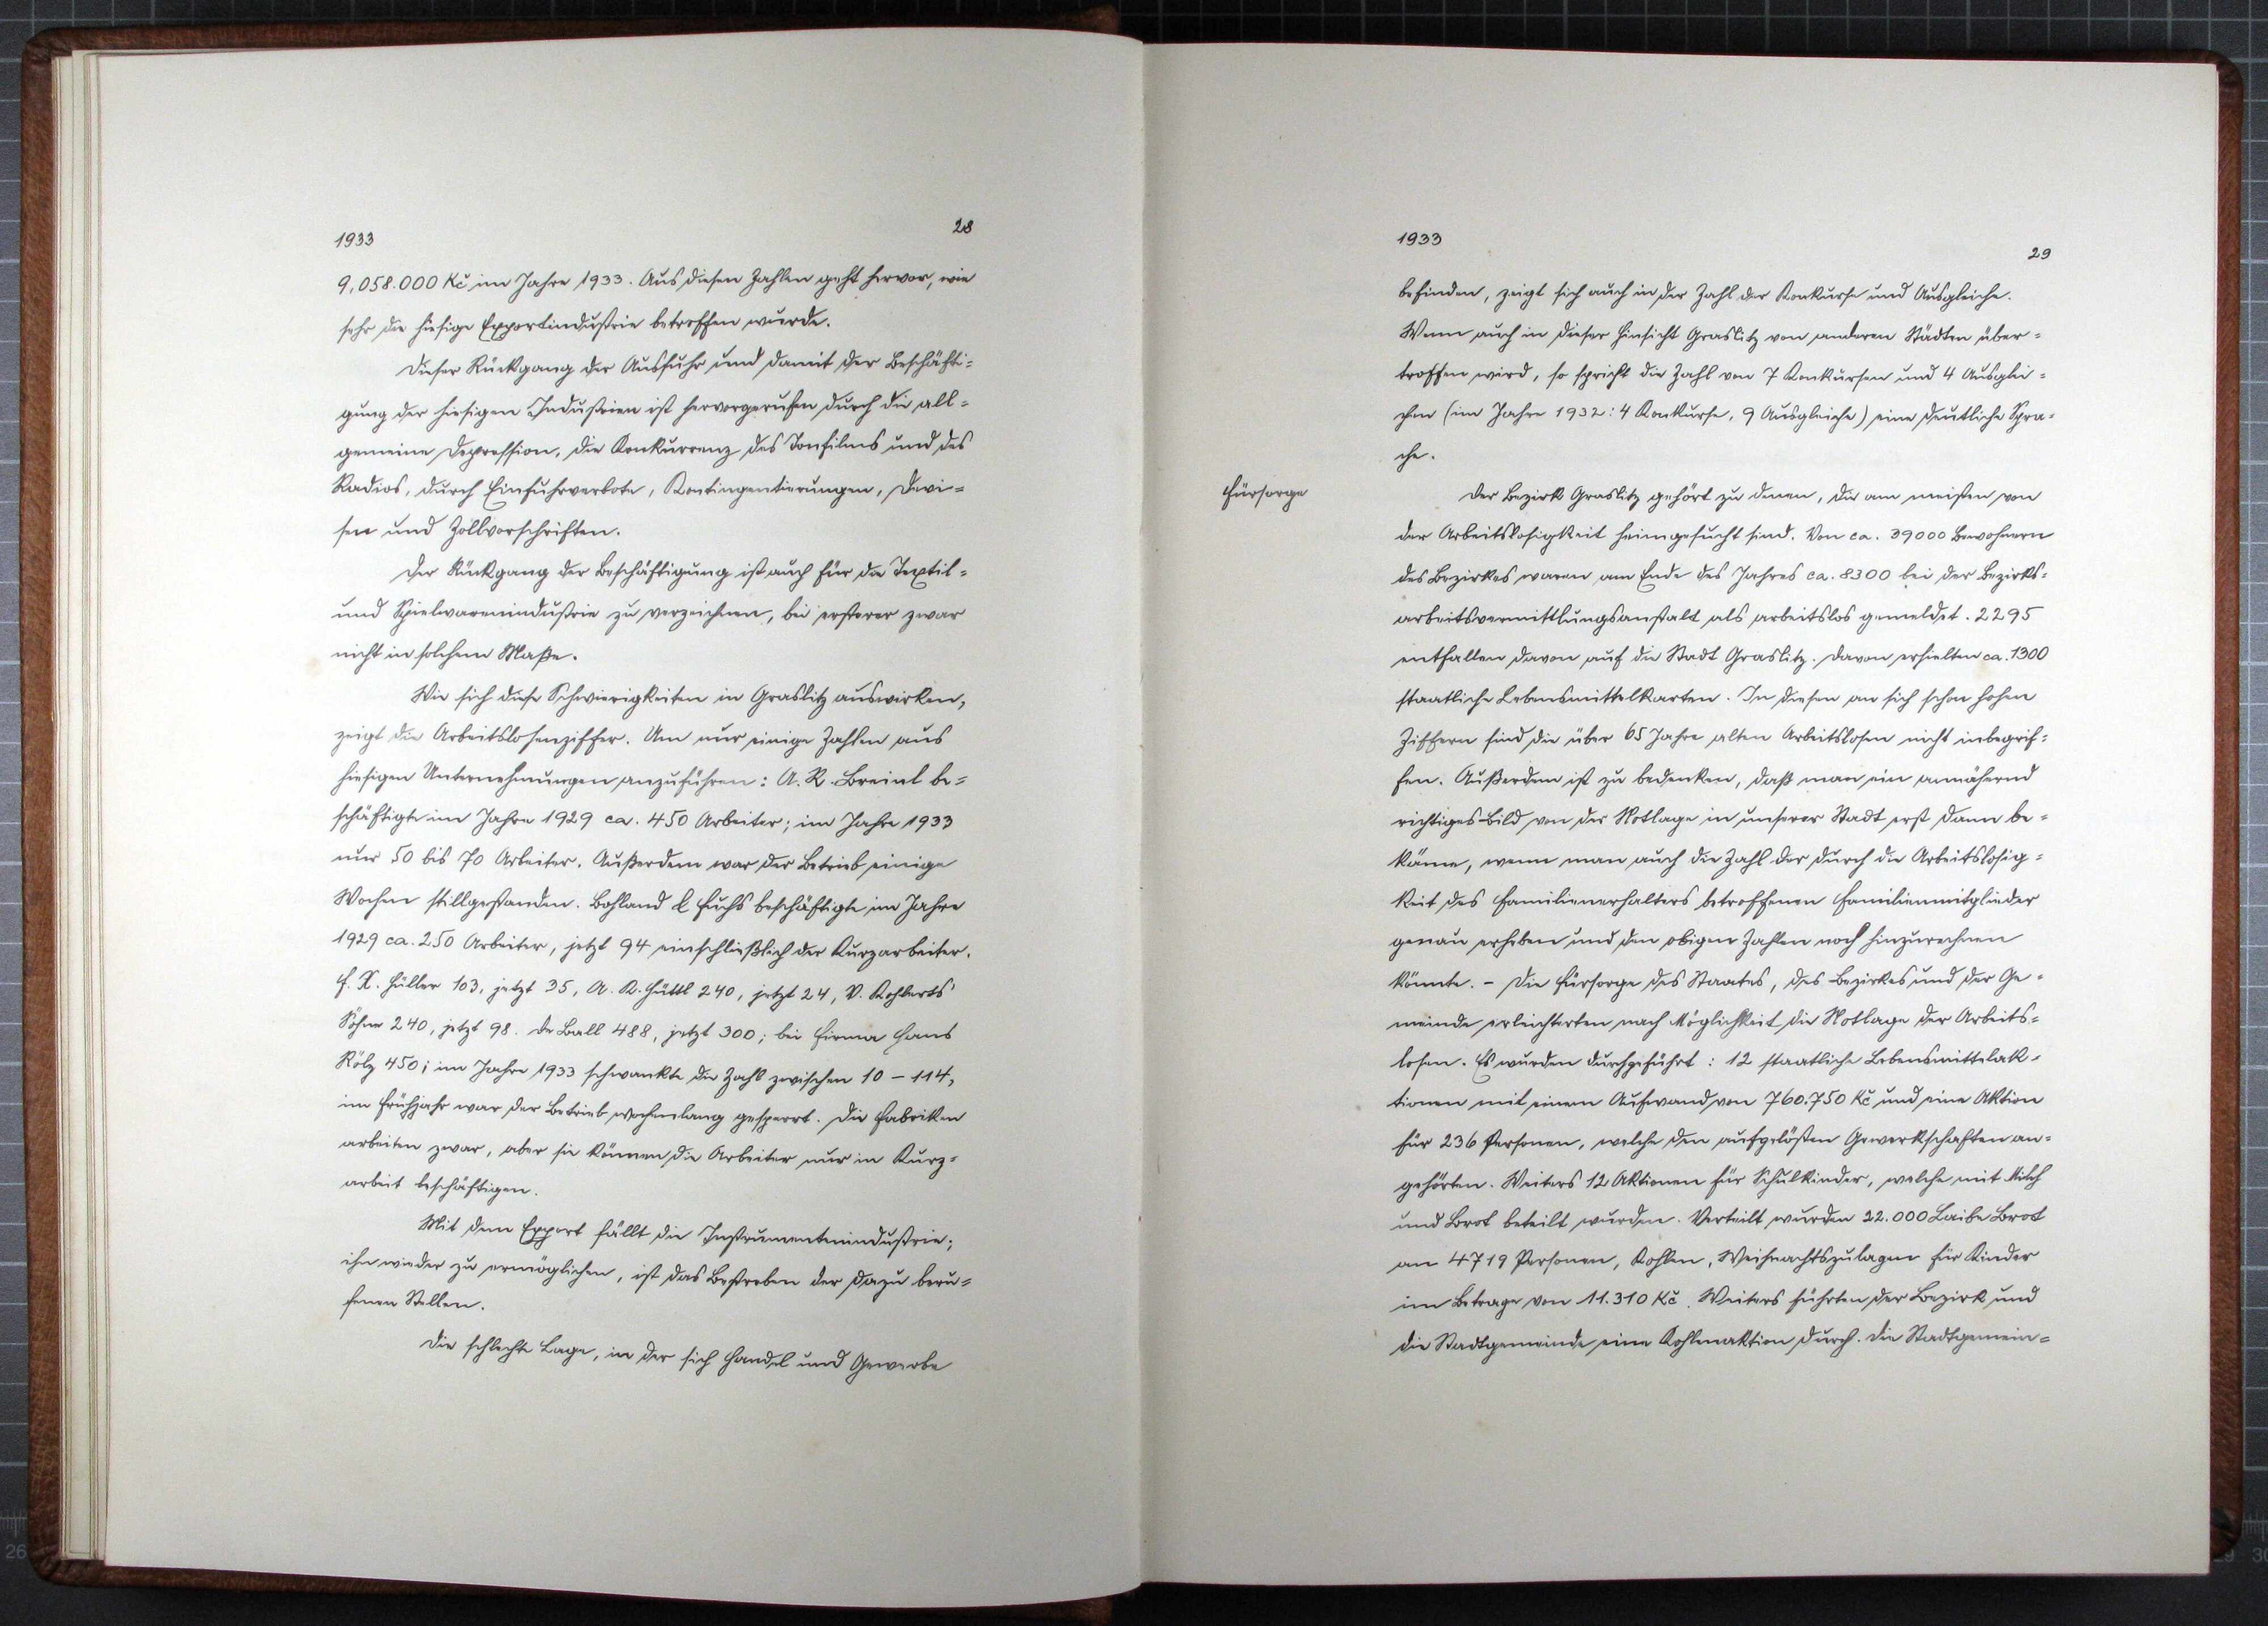 1933
28
9,058.000 Kč im Jahre 1933. Aus diesen Zahlen geht hervor, wie
sehr die hiesige Exportindustrie betroffen wurde.
Dieser Rückgang der Ausfuhr und damit der Beschäfti=
gung der hiesigen Industrien ist hervorgerufen durch die all=
gemeine Depression, die Konkurrenz des Tonfilms und des
Radios, durch Einfuhrverbote, Kontingentierungen, Devi=
sen und Zollvorschriften.
Der Rückgang der Beschäftigung ist auch für die Textil=
und Spielwarenindustrie zu verzeichnen, bei ersterer zwar
nicht in solchem Maße.
Wie sich diese Schwierigkeiten in Graslitz auswirken,
zeigt die Arbeitslosenziffer. Um nur einige Zahlen aus
hiesigen Unternehmungen anzuführen: A. K. Breinl be=
schäftigte im Jahre 1929 ca. 450 Arbeiter; im Jahre 1933
nur 50 bis 70 Arbeiter. Außerdem war der Betrieb einige
Wochen stillgestanden. Bohland & Fuchs beschäftigte im Jahre
1929 ca. 250 Arbeiter, jetzt 94 einschließlich der Kurzarbeiter.
F. X. Hüller 103, jetzt 35, A. K. Hüttl 240, jetzt 24, V. Kohlerts'
Söhne 240, jetzt 98. De Ball 488, jetzt 300; bei Firma Hans
Rölz 450; im Jahre 1933 schwankte die Zahl zwischen 10 – 114,
im Frühjahr war der Betrieb wochenlang gesperrt. Die Fabriken
arbeiten zwar, aber sie können die Arbeiter nur in Kurz=
arbeit beschäftigen.
Mit dem Export fällt die Instrumentenindustrie;
ihn wieder zu ermöglichen, ist das Bestreben der dazu beru=
fenen Stellen.
Die schlechte Lage, in der sich Handel und Gewerbe
1933
29
befinden, zeigt sich auch in der Zahl der Konkurse und Ausgleiche.
Wenn auch in dieser Hinsicht Graslitz von anderen Städten über=
troffen wird, so spricht die Zahl von 7 Konkursen und 4 Ausglei=
chen (im Jahre 1932: 4 Konkurse, 9 Ausgleiche) eine deutliche Spra=
che.
Fürsorge
Der Bezirk Graslitz gehört zu denen, die am meisten von
der Arbeitslosigkeit heimgesucht sind. Von ca. 39000 Bewohnern
des Bezirkes waren am Ende des Jahres ca. 8300 bei der Bezirks=
arbeitsvermittlungsanstalt als arbeitslos gemeldet. 2295
entfallen davon auf die Stadt Graslitz. Davon erhielten ca. 1300
staatliche Lebensmittelkarten. In diesen an sich schon hohen
Ziffern sind die über 65 Jahre alten Arbeitslosen nicht inbegrif=
fen. Außerdem ist zu bedenken, daß man ein annähernd
richtiges Bild von der Notlage in unserer Stadt erst dann be=
käme, wenn man auch die Zahl der durch die Arbeitslosig=
keit des Familienerhalters betroffenen Familienmitglieder
genau erheben und den obigen Zahlen noch hinzurechnen
könnte. – Die Fürsorge des Staates, des Bezirkes und der Ge=
meinde erleichterten nach Möglichkeit die Notlage der Arbeits=
losen. Es wurden durchgeführt: 12 staatliche Lebensmittelak=
tionen mit einem Aufwand von 760.750 Kč und eine Aktion
für 236 Personen, welche den aufgelösten Gewerkschaften an=
gehörten. Weiters 12 Aktionen für Schulkinder, welche mit Milch
und Brot beteilt wurden. Verteilt wurden 22.000 Laibe Brot
an 4719 Personen, Kohlen, Weihnachtszulagen für Kinder
im Betrage von 11.310 Kč. Weiters führten der Bezirk und
die Stadtgemeinde eine Kohlenaktion durch. Die Stadtgemein=